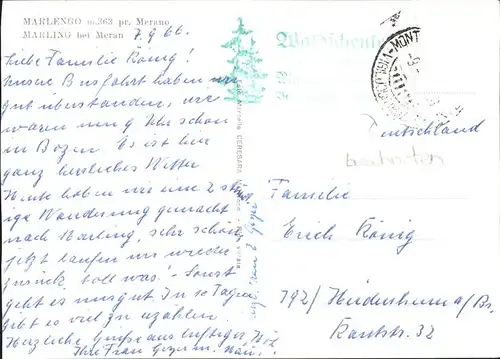 MARLENGO m.363 pr. Merano
MARLING bei Meran 7.9.66.
Liebe Familie König!
Unsere Busfahrt haben wir
gut überstanden, wir
waren um 9 Uhr schon
in Bozen. Es ist hier
ganz herrliches Wetter
Heute haben wir eine 2 stünd
ige Wanderung gemacht
nach Marling, sehr schön,
jetzt laufen wir wieder
zurück. toll was! Sonst
geht es uns gut. In 10 Tagen
gibt es viel zu erzählen.
Herzliche Grüße aus luftiger Höh
Ihre Frau
Deutschland
Familie
Erich König
792/ Heidenheim a/Br.
Kantstr. 32